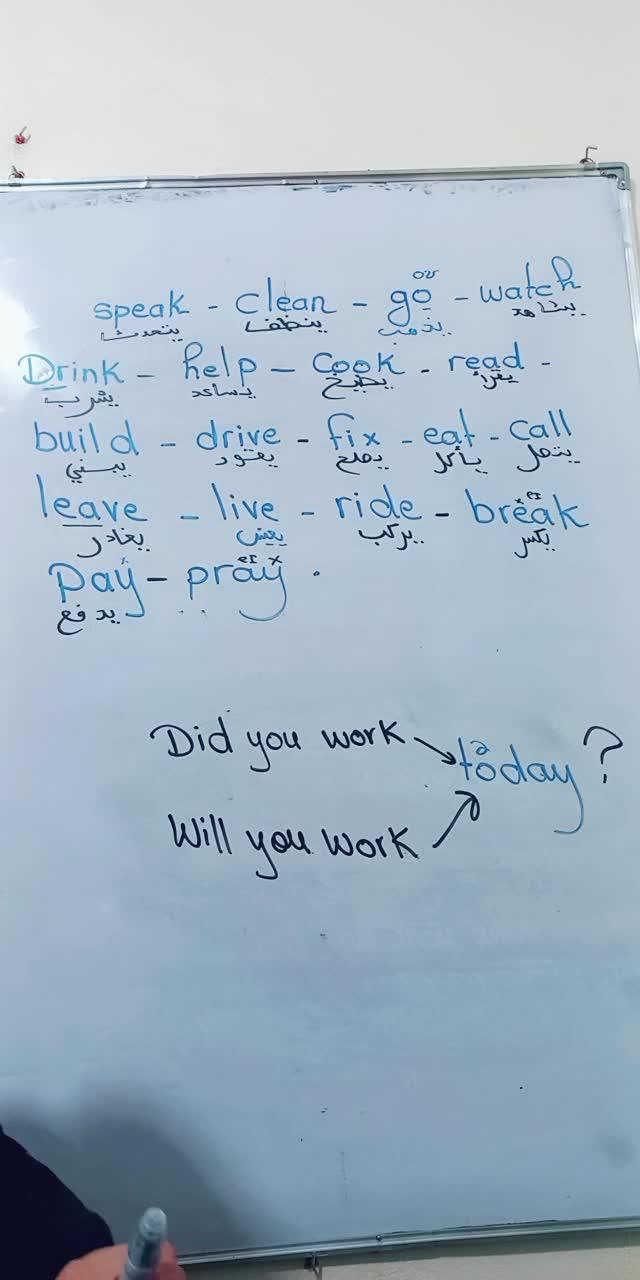 oʊ
speak - clean - go - watch
يتحدث ينظف يذهب يشاهد
Drink - help - cook - read -
يشرب يساعد يطبخ يقرأ
build - drive - fix - eat - call
يبني يقود يصلح يأكل يتصل
eɪ
leave - live - ride - break
يغادر يعيش يركب يكسر
eɪ x
pay - pray .
يدفع
Did you work
ə
today ?
Will you work